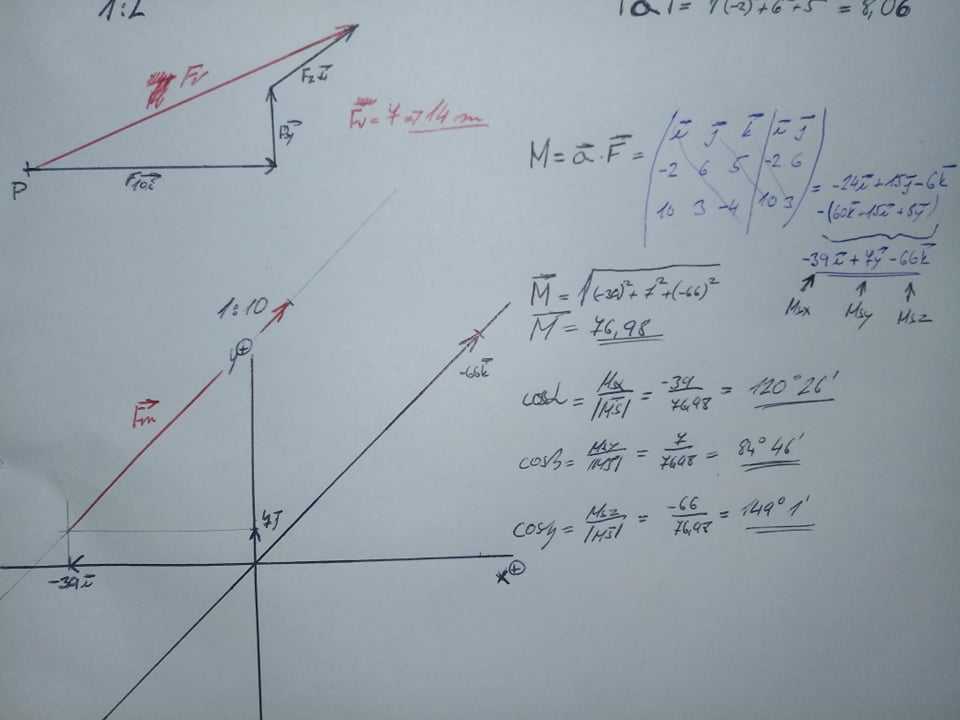 1:2
|a| = √(-2)+6+5 = 8,06
Fv
Fzk
Fv = 7 = 14 m
F3j
P
F10i
M = a · F =
i j k i j
-2 6 5 -2 6
10 3 -4 10 3
= -24i + 15j - 6k
-(60k - 15i + 8j)
-39i + 7j - 66k
Msx Msy Msz
M = √(-39)² + 7² + (-66)²
M = 76,98
1:10
y⊕
-66k
Fm
cosα = Msx / |Ms| = -39 / 76,98 = 120° 26'
cosβ = Msy / |Ms| = 7 / 76,98 = 84° 46'
cosγ = Msz / |Ms| = -66 / 76,98 = 149° 1'
7j
-39i
x⊕